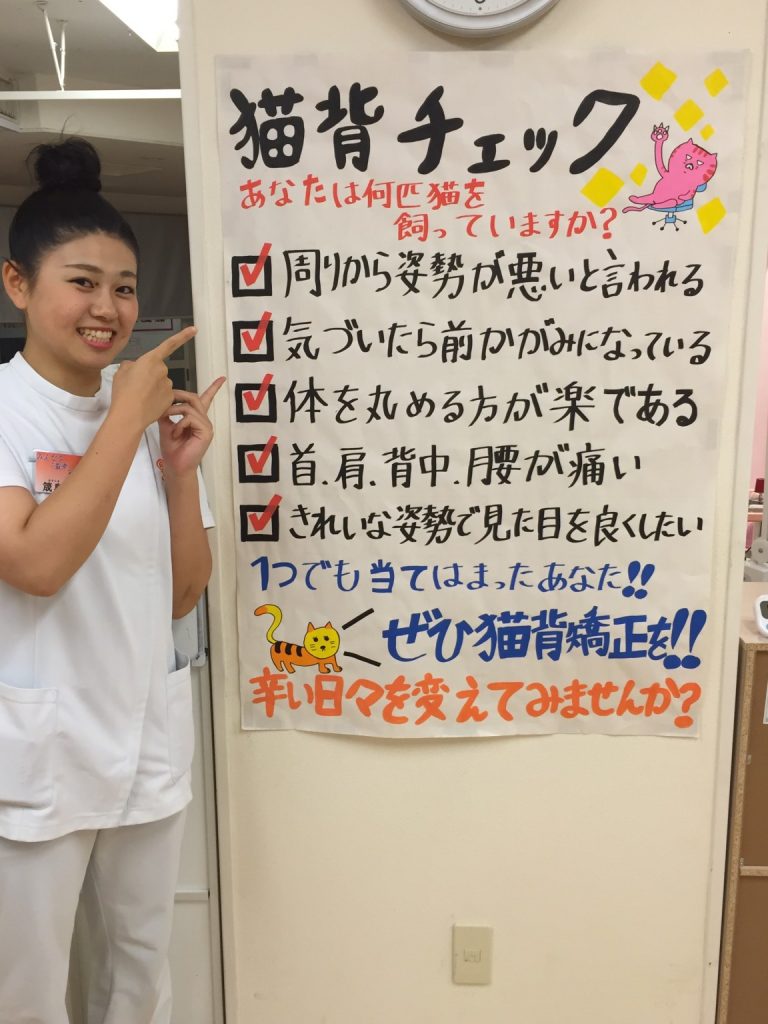 猫背チェック
あなたは何匹猫を
飼っていますか?
周りから姿勢が悪いと言われる
気づいたら前かがみになっている
体を丸める方が楽である
首、肩、背中、腰が痛い
きれいな姿勢で見た目を良くしたい
1つでも当てはまったあなた!!
ぜひ猫背矯正を!!
辛い日々を変えてみませんか?